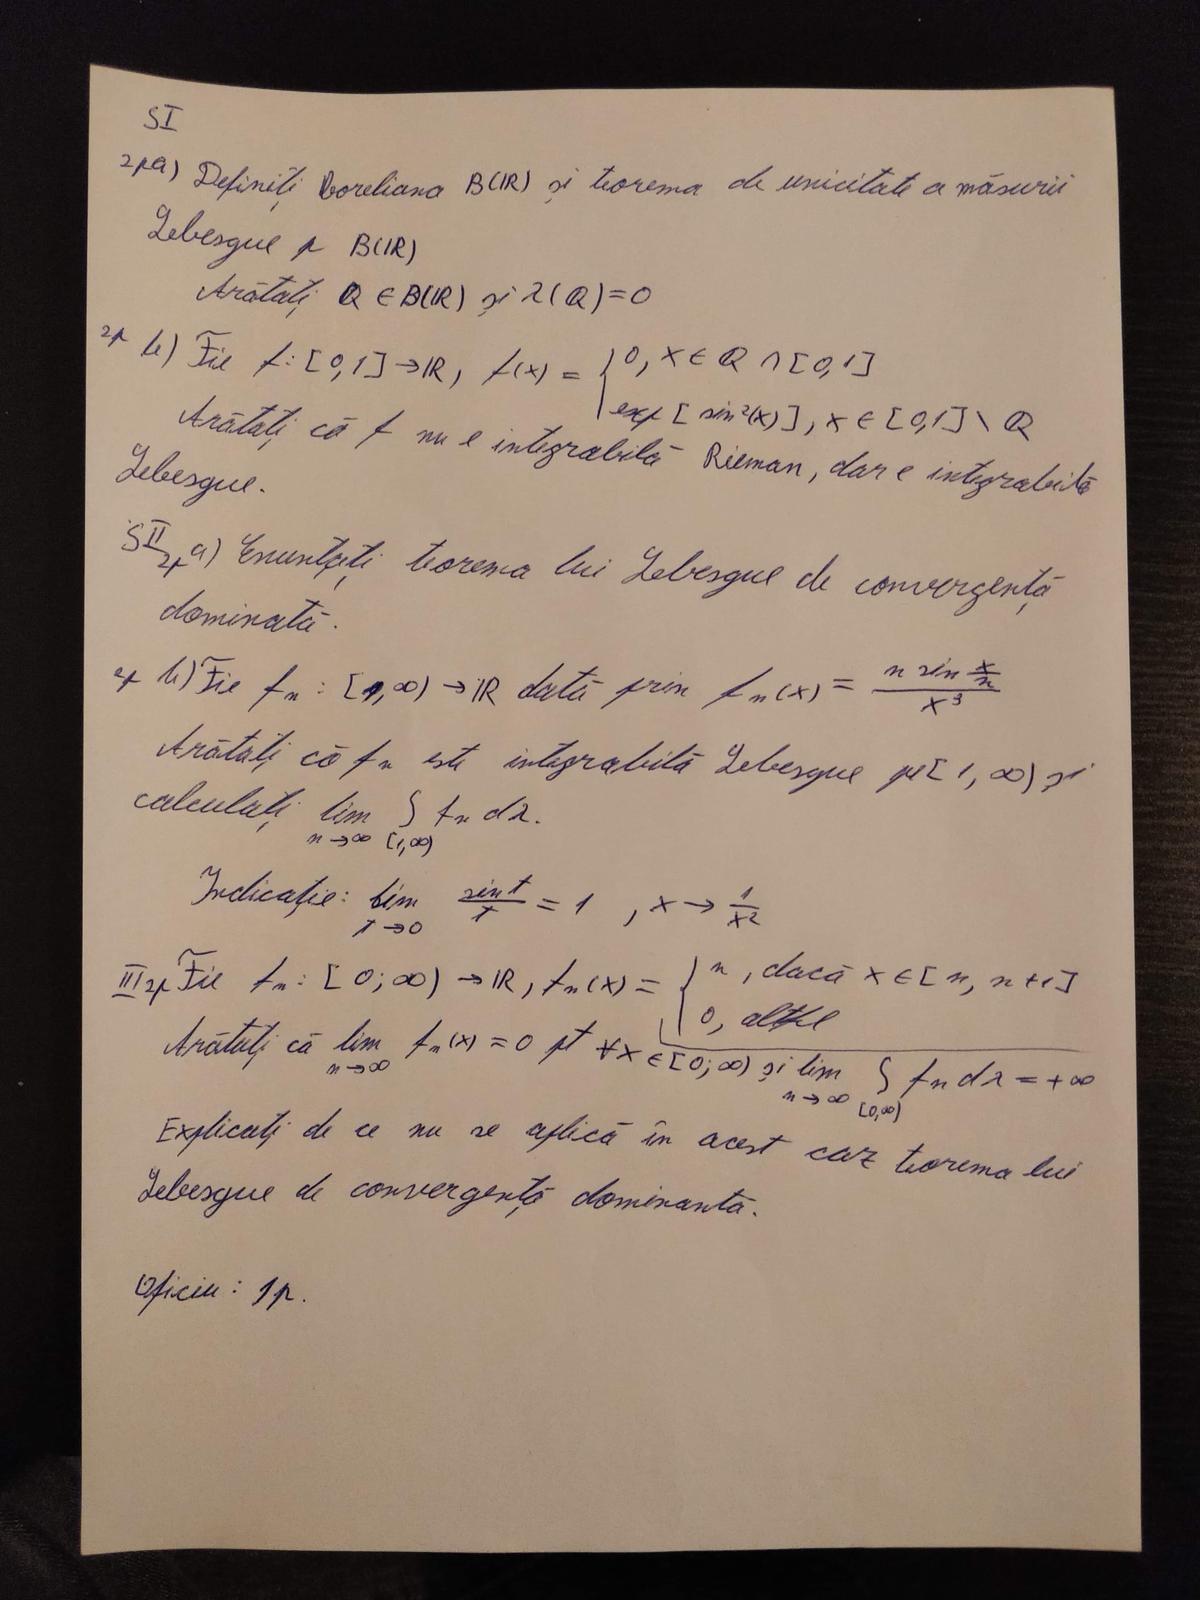 SI
2p a) Definiți boreliana B(ℝ) și teorema de unicitate a măsurii
Lebesgue p B(ℝ)
Arătați ℚ ∈ B(ℝ) și λ(ℚ)=0
2p b) Fie f: [0,1] → ℝ, f(x) = { 0, x ∈ ℚ ∩ [0,1]
exp[sin²(x)], x ∈ [0,1] \ ℚ
Arătați că f nu e integrabilă Rieman, dar e integrabilă
Lebesgue.
SII 2p a) Enunțați teorema lui Lebesgue de convergență
dominată.
2p b) Fie fₙ : [1,∞) → ℝ dată prin fₙ(x) = (n sin x/n) / x³
Arătați că fₙ este integrabilă Lebesgue pe [1,∞) și
calculați lim n→∞ ∫ [1,∞) fₙ dλ.
Indicație: lim t→0 sin t / t = 1 , x → 1/x²
III 2p Fie fₙ : [0;∞) → ℝ, fₙ(x) = { n, dacă x ∈ [n, n+1]
0, altfel
Arătați că lim n→∞ fₙ(x) = 0 pt ∀x ∈ [0;∞) și lim n→∞ ∫ [0,∞) fₙ dλ = +∞
Explicați de ce nu se aplică în acest caz teorema lui
Lebesgue de convergență dominantă.
Oficiu: 1p.